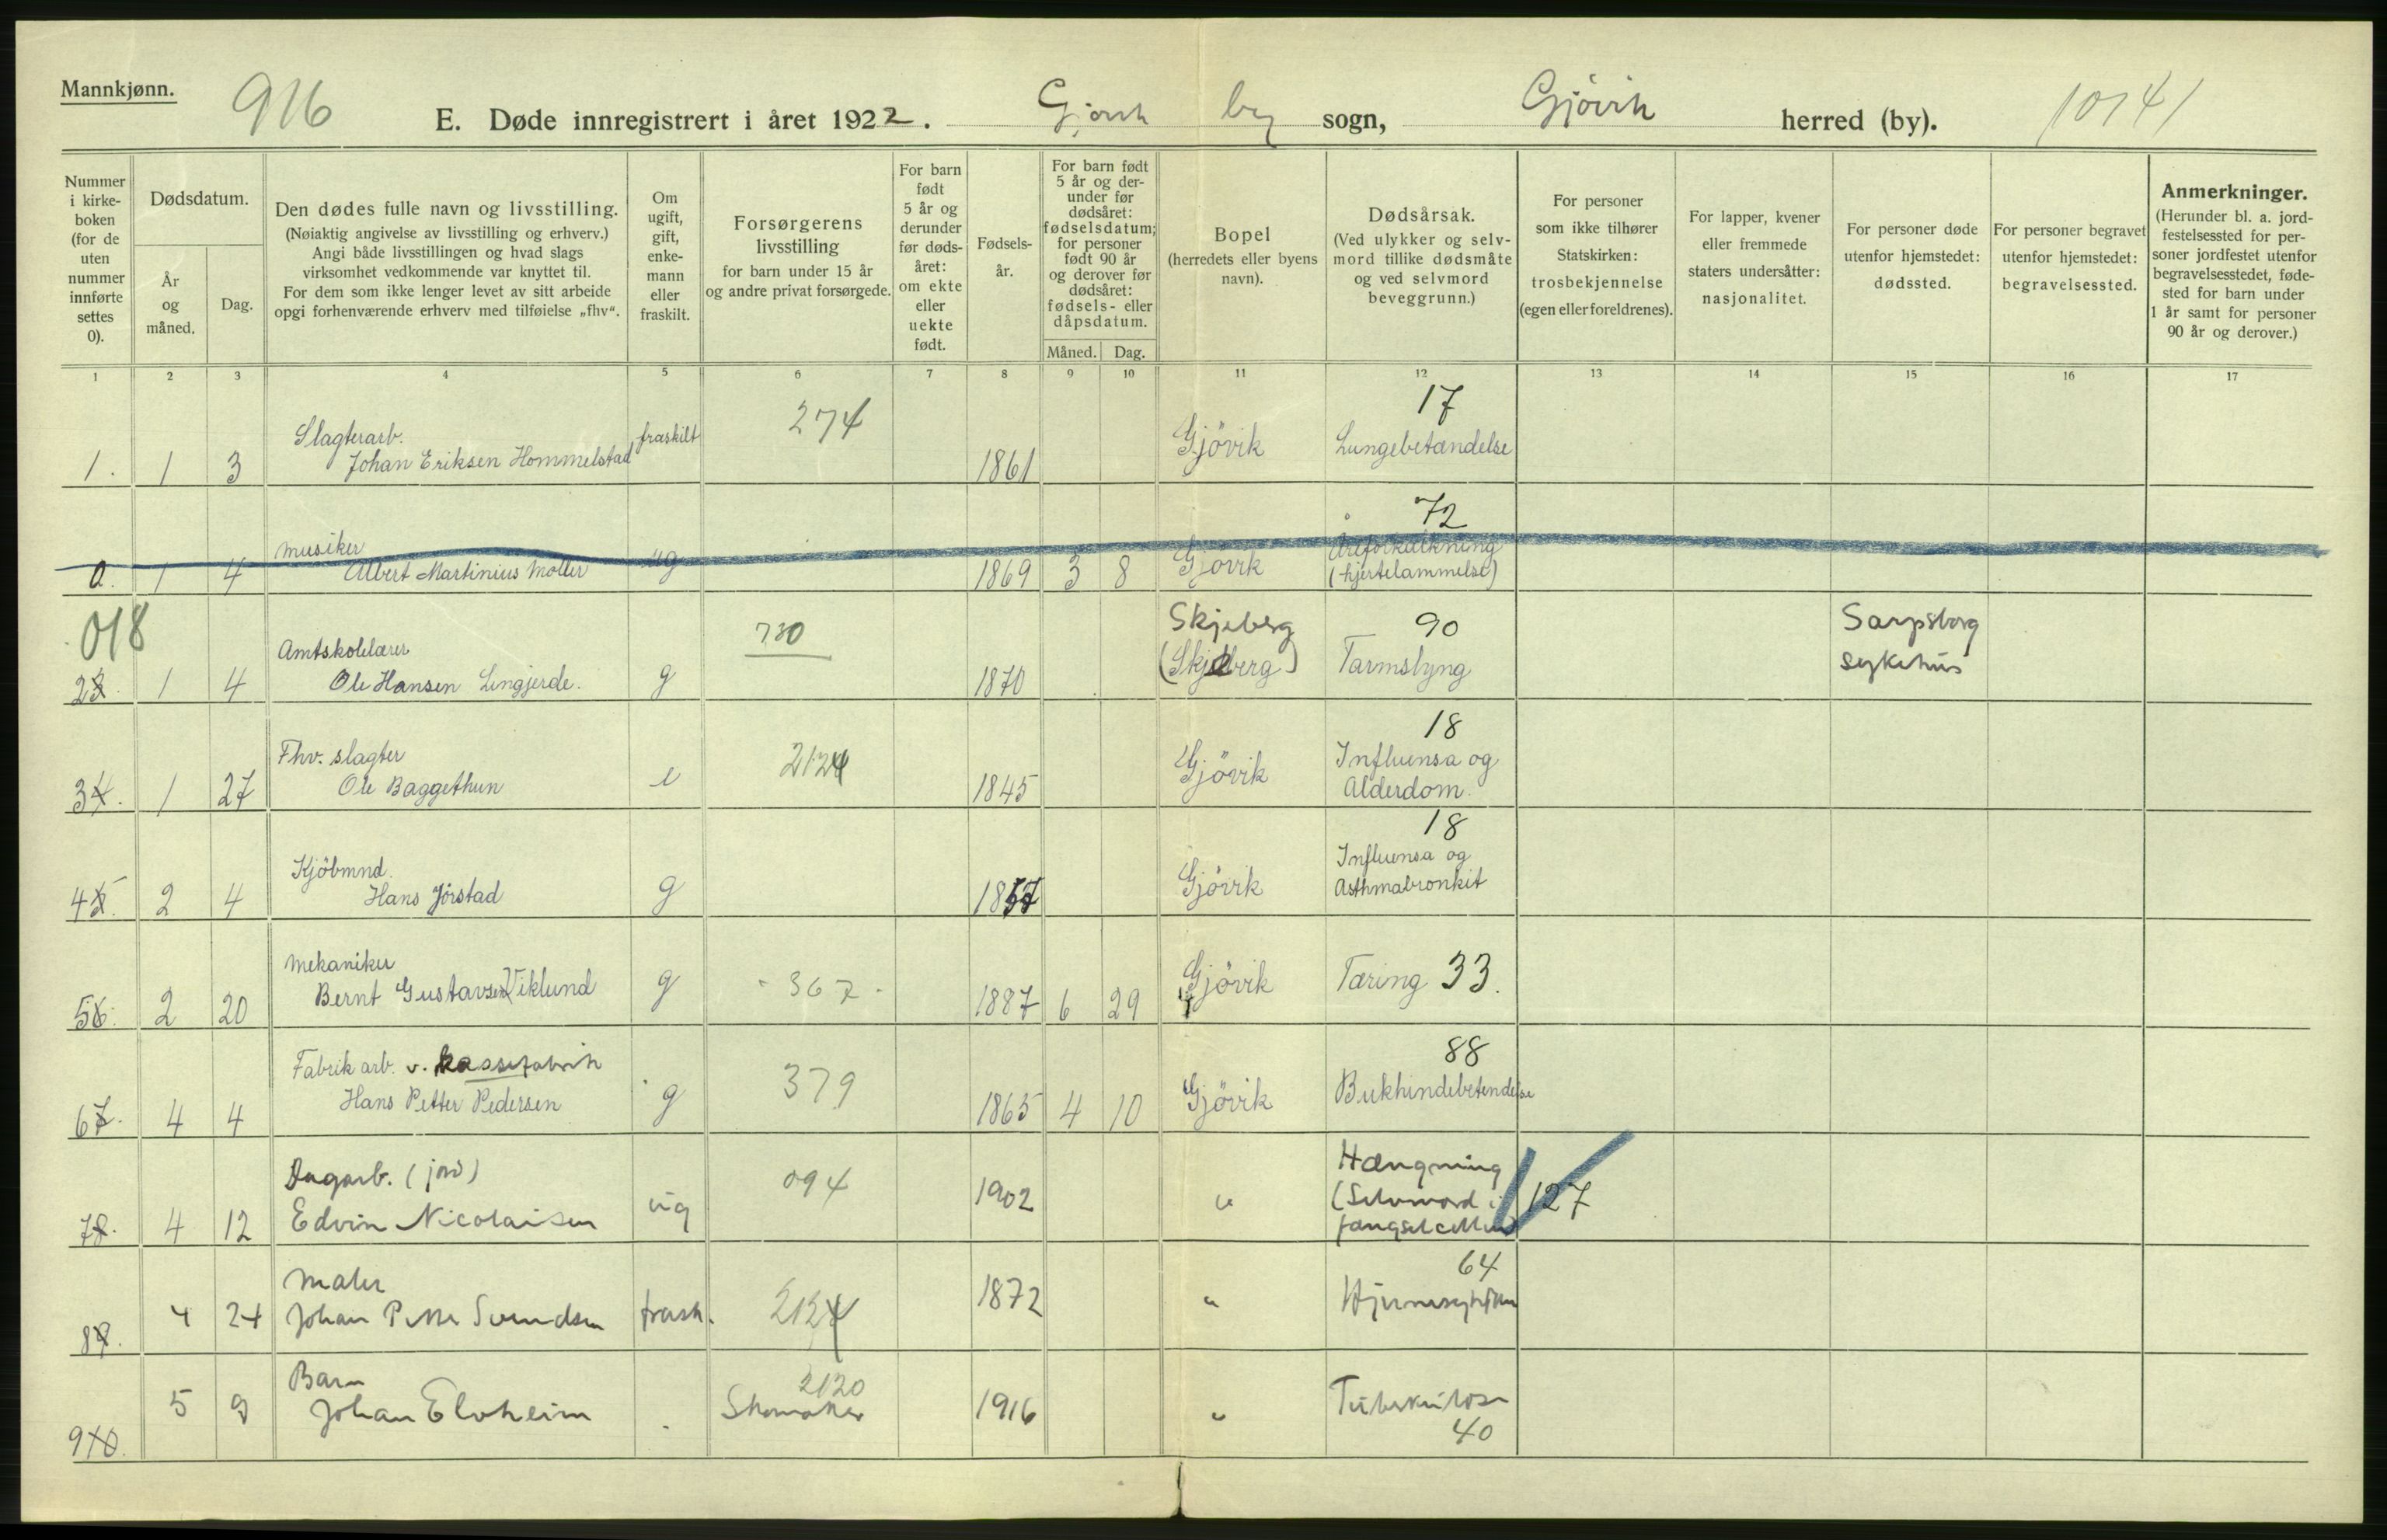 Mannkjønn.
916
E. Døde innregistrert i året 1922. Gjövik by sogn, Gjövik herred (by).
10141
Nummer i kirke-boken (for de uten nummer innførte settes 0).
Dødsdatum.
År og måned.
Dag.
Den dødes fulle navn og livsstilling.
(Nøiaktig angivelse av livsstilling og erhverv.)
Angi både livsstillingen og hvad slags
virksomhet vedkommende var knyttet til.
For dem som ikke lenger levet av sitt arbeide
opgi forhenværende erhverv med tilføielse „fhv“.
Om ugift, gift, enke-mann eller fraskilt.
Forsørgerens livsstilling
for barn under 15 år
og andre privat forsørgede.
For barn født 5 år og derunder før døds-året: om ekte eller uekte født.
Fødsels-år.
For barn født 5 år og der-under før dødsåret: fødselsdatum; for personer født 90 år og derover før dødsåret: fødsels- eller dåpsdatum.
Måned.
Dag.
Bopel
(herredets eller byens navn).
Dødsårsak.
(Ved ulykker og selv-mord tillike dødsmåte og ved selvmord beveggrunn.)
For personer som ikke tilhører Statskirken: trosbekjennelse (egen eller foreldrenes).
For lapper, kvener eller fremmede staters undersåtter: nasjonalitet.
For personer døde utenfor hjemstedet: dødssted.
For personer begravet utenfor hjemstedet: begravelsessted.
Anmerkninger.
(Herunder bl. a. jord-festelsessted for per-soner jordfestet utenfor begravelsesstedet, føde-sted for barn under 1 år samt for personer 90 år og derover.)
1 2 3 4 5 6 7 8 9 10 11 12 13 14 15 16 17
1. 1 3 Slagterarb. Johan Eriksen Hommelstad fraskilt 274 1861 Gjövik 17 Lungebetændelse
0. 1 4 Musiker Albert Martinius Møller ug 1869 3 8 Gjövik 72 Åreforkalkning (hjertelammelse)
018
23. 1 4 Amtskolelærer Ole Hansen Lengjerde. g 780 1870 Skjeberg (Skjeberg) 90 Tarmslyng Sarpsborg sykehus
34. 1 27 Fhv. slagter Ole Baggethun e 2124 1845 Gjövik 18 Influensa og Alderdom.
45. 2 4 Kjöbmnd. Hans Jörstad g 1857 Gjövik 18 Influensa og Asthmabronkit
56. 2 20 Mekaniker Bernt Gustavsen Viklund g - 367 - 1887 6 29 Gjövik Tæring 33.
67. 4 4 Fabrik arb. v. kassefabrik Hans Petter Pedersen g 379 1865 4 10 Gjövik 88 Bukhindebetendelse
78. 4 12 Dagarb. (jord) Edvin Nicolaisen ug 094 1902 " Hængning (Selvmord i fængselcellen) 127
89. 4 24 Maler Johan Petter Svendsen frask. 2124 1872 " 64 Hjernesykdom
910. 5 9 Barn Johan Elvheim . 2120 Skomaker 1916 " Tuberkulose 40